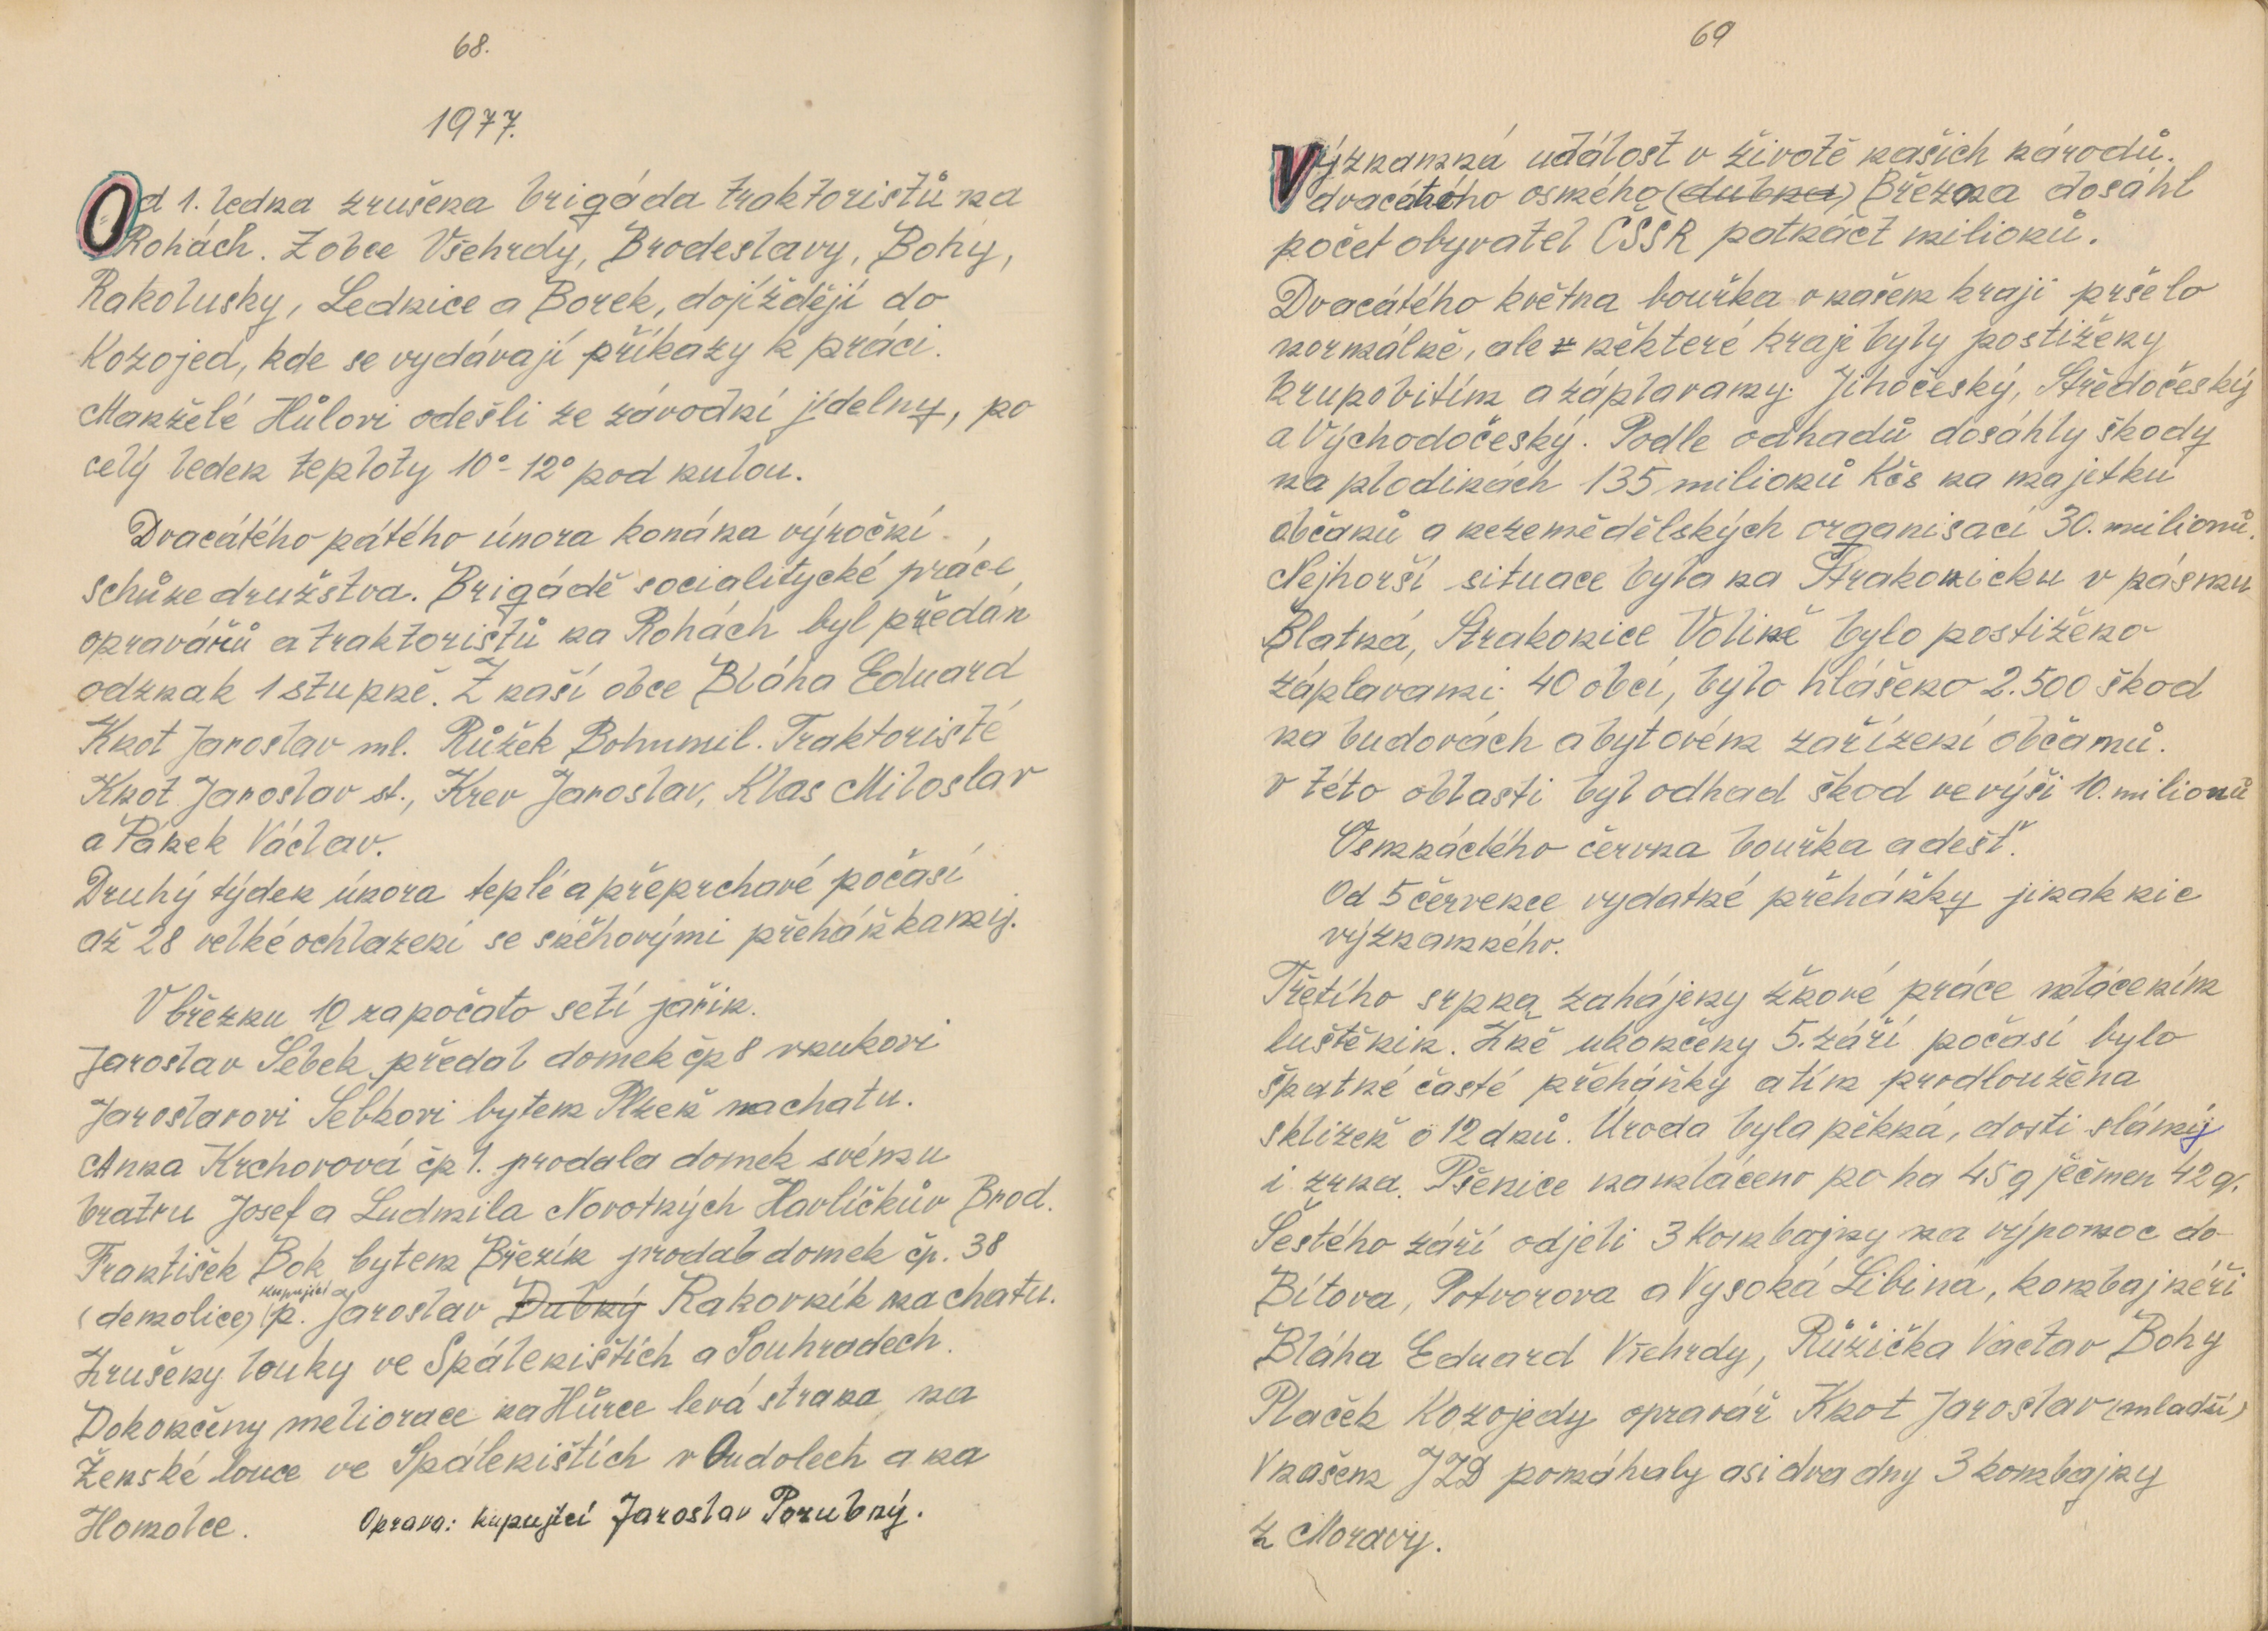 68.
1977.
Od 1. ledna zrušena brigáda traktoristů na
Rohách. Z obce Všehrdy, Brodeslavy, Bohy,
Rakolusky, Lednice a Borek, dojíždějí do
Kozojed, kde se vydávají příkazy k práci.
Manželé Hůlovi odešli ze závodní jídelny, po
celý leden teploty 10°-12° pod nulou.
Dvacátého pátého února konána výroční
schůze družstva. Brigádě socialitycké práce
opravářů a traktoristů na Rohách byl předán
odznak 1 stupně. Z naší obce Bláha Eduard
Knot Jaroslav ml. Růžek Bohumil. Traktoristé
Knot Jaroslav st., Krev Jaroslav, Klas Miloslav
a Pánek Václav.
Druhý týden února teplé a přeprchavé počasí
až 28 velké ochlazení se sněhovými přeháňkamy.
V březnu 10 započato setí jařin.
Jaroslav Šebek předal domek čp 8 vnukovi
Jaroslavovi Šebkovi bytem Plzeň na chatu.
Anna Krchovová čp 1. prodala domek svému
bratru Josef a Ludmila Novotných Havlíčkův Brod.
František Bok bytem Březín prodal domek čp. 38
kupující
(demolice) p. Jaroslav Dubný Rakovník na chatu.
Zrušeny louky ve Spáleništích a Souhradech.
Dokončeny meliorace na Hůrce levá strana na
Ženské louce ve Spáleništích v Oudolech a na
Homolce.
Oprava: kupující Jaroslav Porubný.
69
Významná událost v životě našich národů.
dvacátého osmého (dubna) Března dosáhl
počet obyvatel ČSSR patnáct milionů.
Dvacátého května bouřka v našem kraji pršelo
normálně, ale některé kraje byly postiženy
krupobitím a záplavamy: Jihočeský, Středočeský
a Východočeský. Podle odhadů dosáhly škody
na plodinách 135 milionů Kčs na majetku
občanů a nezemědělských organisací 30. milionů.
Nejhorší situace byla na Strakonicku v pásmu
Blatná, Strakonice Volině bylo postiženo
záplavami 40 obcí, bylo hlášeno 2.500 škod
na budovách a bytovém zařízení občanů.
v této oblasti byl odhad škod ve výši 10. milionů
Osmnáctého června bouřka a déšť.
Od 5 července vydatné přeháňky jinak nic
významného.
Třetího srpna zahájeny žňové práce mlácením
luštěnin. Žně ukončeny 5. září počasí bylo
špatné časté přeháňky a tím prodloužena
sklizeň o 12 dnů. Úroda byla pěkná, dosti slámy
i zrna. Pšenice namláceno po ha 45 q ječmen 42 q.
Šestého září odjeli 3 kombajny na výpomoc do
Bítova, Potvorova a Vysoká Libina, kombajnéři
Bláha Eduard Všehrdy, Růžička Václav Bohy
Plaček Kozojedy opravář Knot Jaroslav (mladší)
V našem JZD pomáhaly asi dva dny 3 kombajny
z Moravy.